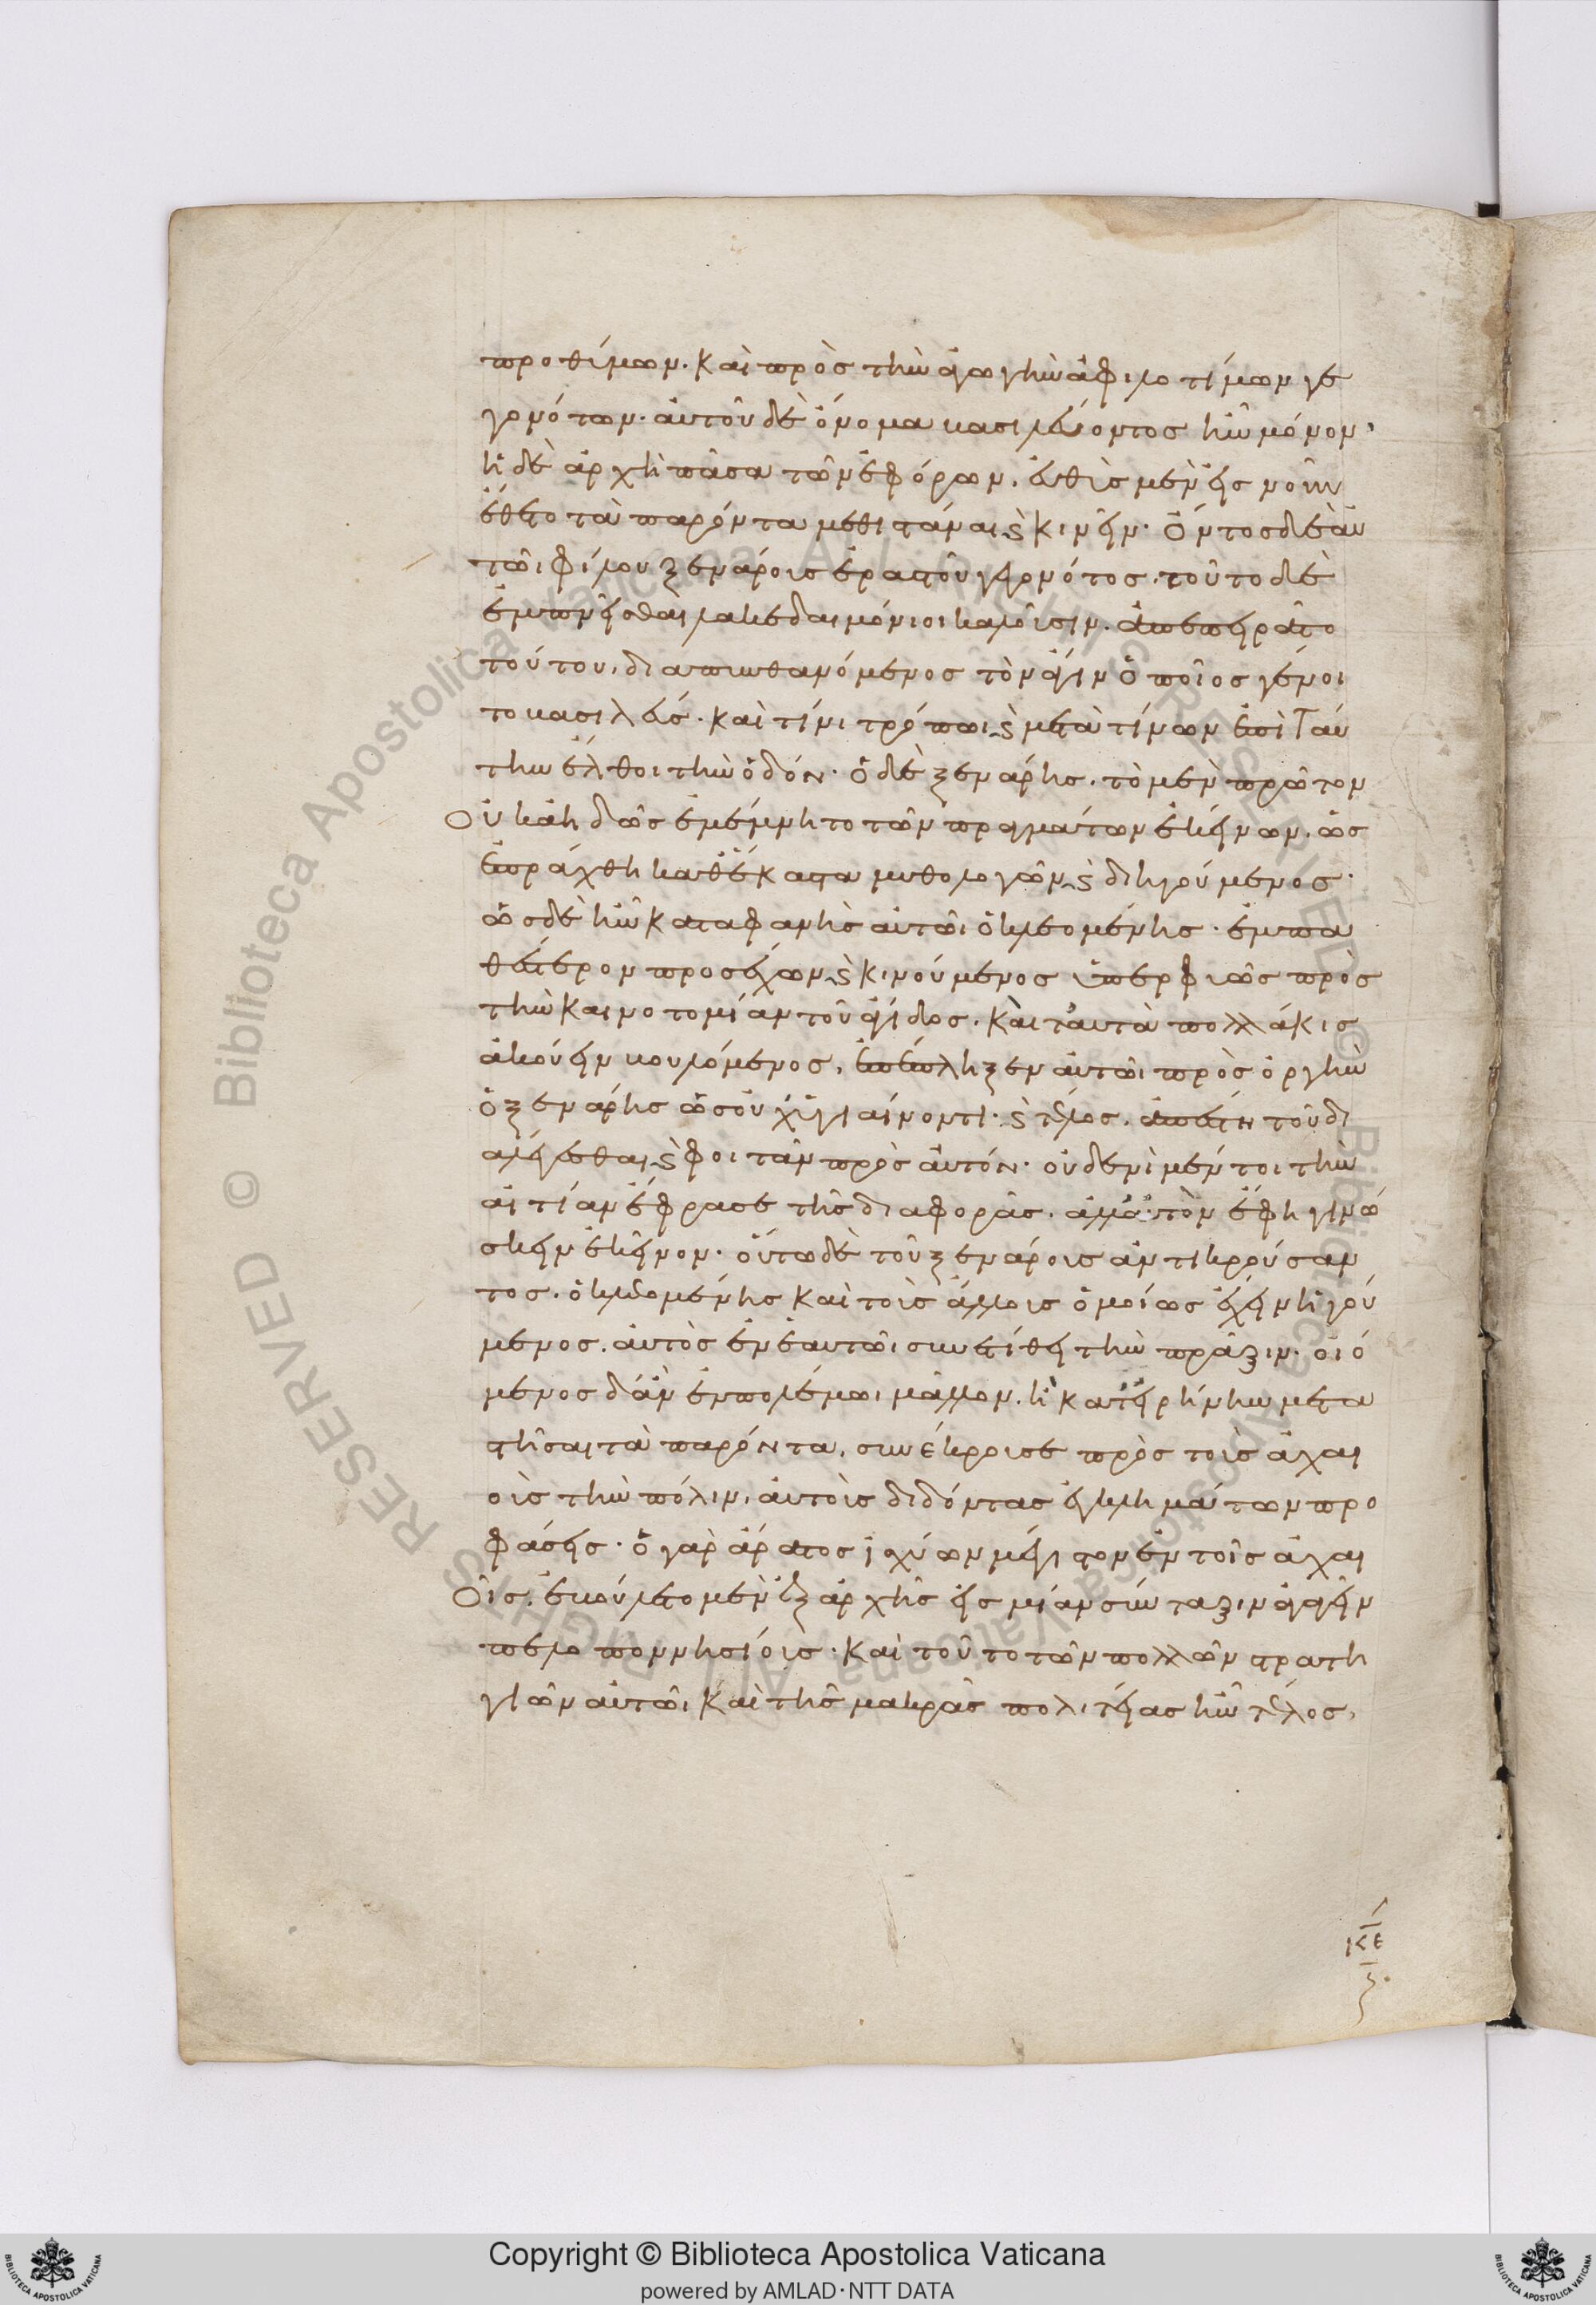 προθύμων· καὶ πρὸς τὴν ἀγωγὴν ἀφιλοτίμων γε
γονότων· αὐτοῦ δὲ ὄνομα βασιλεύοντος ἦν μόνον,
ἡ δὲ ἀρχὴ πᾶσα τῶν ἐφόρων, εὐθὺς μὲν εἰς νοῦν
ἔθετο τὰ παρόντα μεθιστάναι ϗ κινεῖν· ὄντος δὲ αὐ
τῶι φίλου ξενάρους ἐραστοῦ γεγονότος, τοῦτο δὲ
ἐμπνεῖσθαι λακεδαιμόνιοι καλοῦσιν, ἀπεπειρᾶτο
τούτου, διαπυνθανόμενος τὸν ἄγιν ὁποῖος γένοι
το βασιλεύς· καὶ τίνι τρόπωι ϗ μετὰ τίνων ἐπὶ ταύ
την ἔλθοι τὴν ὁδόν· ὁ δὲ ξενάρης, τὸ μὲν πρῶτον
οὐκ ἀηδῶς ἐμέμνητο τῶν πραγμάτων ἐκείνων, ὡς
ἐπράχθη καθ᾽ἕκαστα μυθολογῶν ϗ διηγούμενος·
ὡς δὲ ἦν καταφανὴς αὐτῶι ὁ κλεομένης· ἐμπα
θέστερον προσέχων ϗ κινούμενος ὑπερφυῶς πρὸς
τὴν καινοτομίαν τοῦ ἄγιδος, καὶ ταυτὰ πολλάκις
ἀκούειν βουλόμενος, ἐπέπληξεν αὐτῶι πρὸς ὀργὴν
ὁ ξενάρης ὡς οὐχ ὑγιαίνοντι· ϗ τέλος, ἀπέστη τοῦ δι
αλέγεσθαι ϗ φοιτᾶν πρὸς αὐτόν· οὐδενὶ μέντοι τὴν
αἰτίαν ἔφρασε τῆς διαφορᾶς, ἀλλ᾽αὐτὸν ἔφη γινώ
σκειν ἐκεῖνον· οὕτω δὲ τοῦ ξενάρους ἀντικρούσαν
τος, ὁ κλεομένης καὶ τοὺς ἄλλους ὁμοίως ἔχειν ἡγού
μενος, αὐτὸς ἐν ἑαυτῶι συνετίθει τὴν πρᾶξιν· οἰό
μενος δ᾽ἂν ἐν πολέμωι μᾶλλον, ἢ κατ᾽εἰρήνην μετα
στῆσαι τὰ παρόντα, συνέκρουσε πρὸς τοὺς ἀχαι
οὺς τὴν πόλιν, αὐτοὺς διδόντας ἐγκλημάτων προ
φάσεις· ὁ γὰρ ἄρατος ἰσχύων μέγιστον ἐν τοῖς ἀχαι
οῖς, ἐβούλετο μὲν ἐξ ἀρχῆς εἰς μίαν σύνταξιν ἀγαγεῖν
πελοποννησίους· καὶ τοῦτο τῶν πολλῶν στρατη
γιῶν αὐτῶι καὶ τῆς μακρᾶς πολιτείας ἦν τέλος,
κε
Copyright © Biblioteca Apostolica Vaticana
powered by AMLAD·NTT DATA